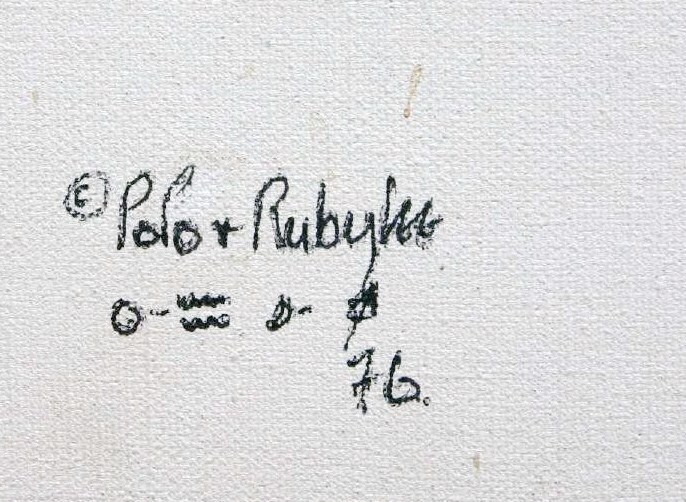 © Polo + Rubylee
76.